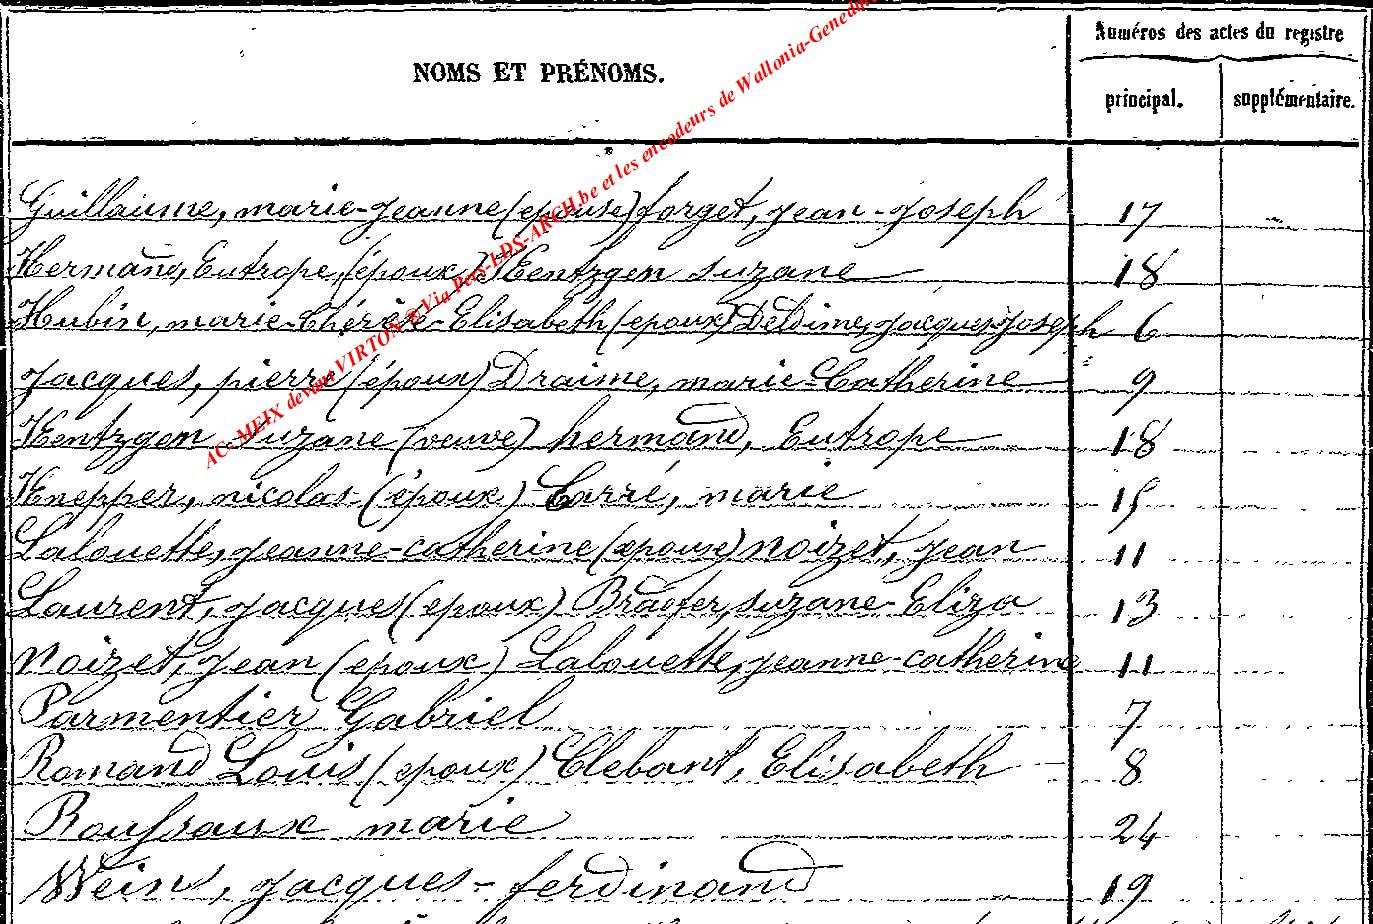 Numéros des actes du registre
NOMS ET PRÉNOMS.
principal. supplémentaire.
AC- MEIX devant VIRTON Via Pers-LDS-ARCH.be et les encodeurs de Wallonia-Geneda
Guillaume, marie-jeanne (epouse) forget, jean-joseph 17
Hermand, Eutrope, (époux) Kentzgen suzane 18
Hubin, marie-thérèse-Elisabeth (epoux) Deldime, jacques-joseph 6
jacques, pierre (époux) Draime, marie-Catherine 9
Kentzgen suzane (veuve) hermand, Eutrope 18
Knepper, nicolas (époux) Carré, marie 15
Lalouette, jeanne-catherine (epouse) noizet, jean 11
Laurent, jacques (epoux) suzane-Eliza 13
noizet, jean (epoux) Lalouette, jeanne-catherine 11
Parmentier Gabriel 7
Romand Louis (epoux) Clebant, Elisabeth 8
Roussaux marie 24
Weins, jacques-ferdinand 19